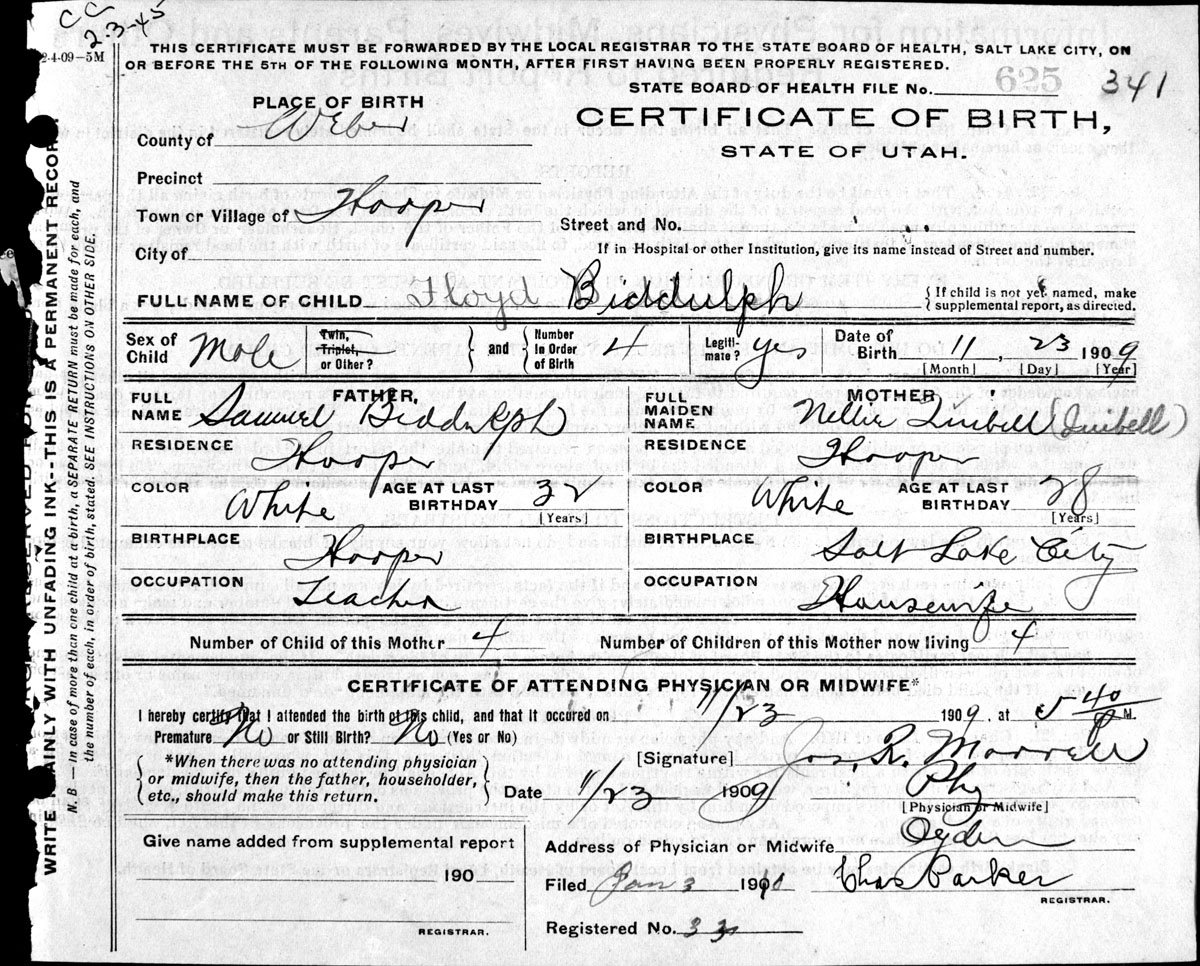 CC
2-3-45
2-4-09-5M
THIS CERTIFICATE MUST BE FORWARDED BY THE LOCAL REGISTRAR TO THE STATE BOARD OF HEALTH, SALT LAKE CITY, ON
OR BEFORE THE 5TH OF THE FOLLOWING MONTH, AFTER FIRST HAVING BEEN PROPERLY REGISTERED.
625
STATE BOARD OF HEALTH FILE No. 341
PLACE OF BIRTH
CERTIFICATE OF BIRTH,
STATE OF UTAH.
County of Weber
Precinct
Town or Village of Hooper
Street and No.
City of
If in Hospital or other Institution, give its name instead of Street and number.
FULL NAME OF CHILD Floyd Biddulph {If child is not yet named, make supplemental report, as directed.
Sex of Child Male Twin, Triplet, or Other? } and { Number in Order of Birth 4 Legitimate? yes Date of Birth 11, 23 1909
[Month] [Day] [Year]
FATHER, FULL NAME Samuel Biddulph
MOTHER FULL MAIDEN NAME Nellie
RESIDENCE Hooper
RESIDENCE Hooper
COLOR White AGE AT LAST BIRTHDAY 32 [Years]
COLOR White AGE AT LAST BIRTHDAY 28 [Years]
BIRTHPLACE Hooper
BIRTHPLACE Salt Lake City
OCCUPATION Teacher
OCCUPATION Housewife
Number of Child of this Mother 4 Number of Children of this Mother now living 4
CERTIFICATE OF ATTENDING PHYSICIAN OR MIDWIFE*
I hereby certify that I attended the birth of this child, and that it occured on 11/23 1909, at 5 40 M.
Premature No or Still Birth? No (Yes or No)
[Signature] Jos R. Morrell
*When there was no attending physician
or midwife, then the father, householder,
etc., should make this return.
Date 11/23 1909 Phy
[Physician or Midwife]
Give name added from supplemental report
Address of Physician or Midwife Ogden
190
Filed Jan 3 1910 Chas Parker
REGISTRAR.
REGISTRAR.
Registered No. 33
WRITE PLAINLY WITH UNFADING INK--THIS IS A PERMANENT RECORD.
N. B.—In case of more than one child at a birth, a SEPARATE RETURN must be made for each, and
the number of each, in order of birth, stated. SEE INSTRUCTIONS ON OTHER SIDE.